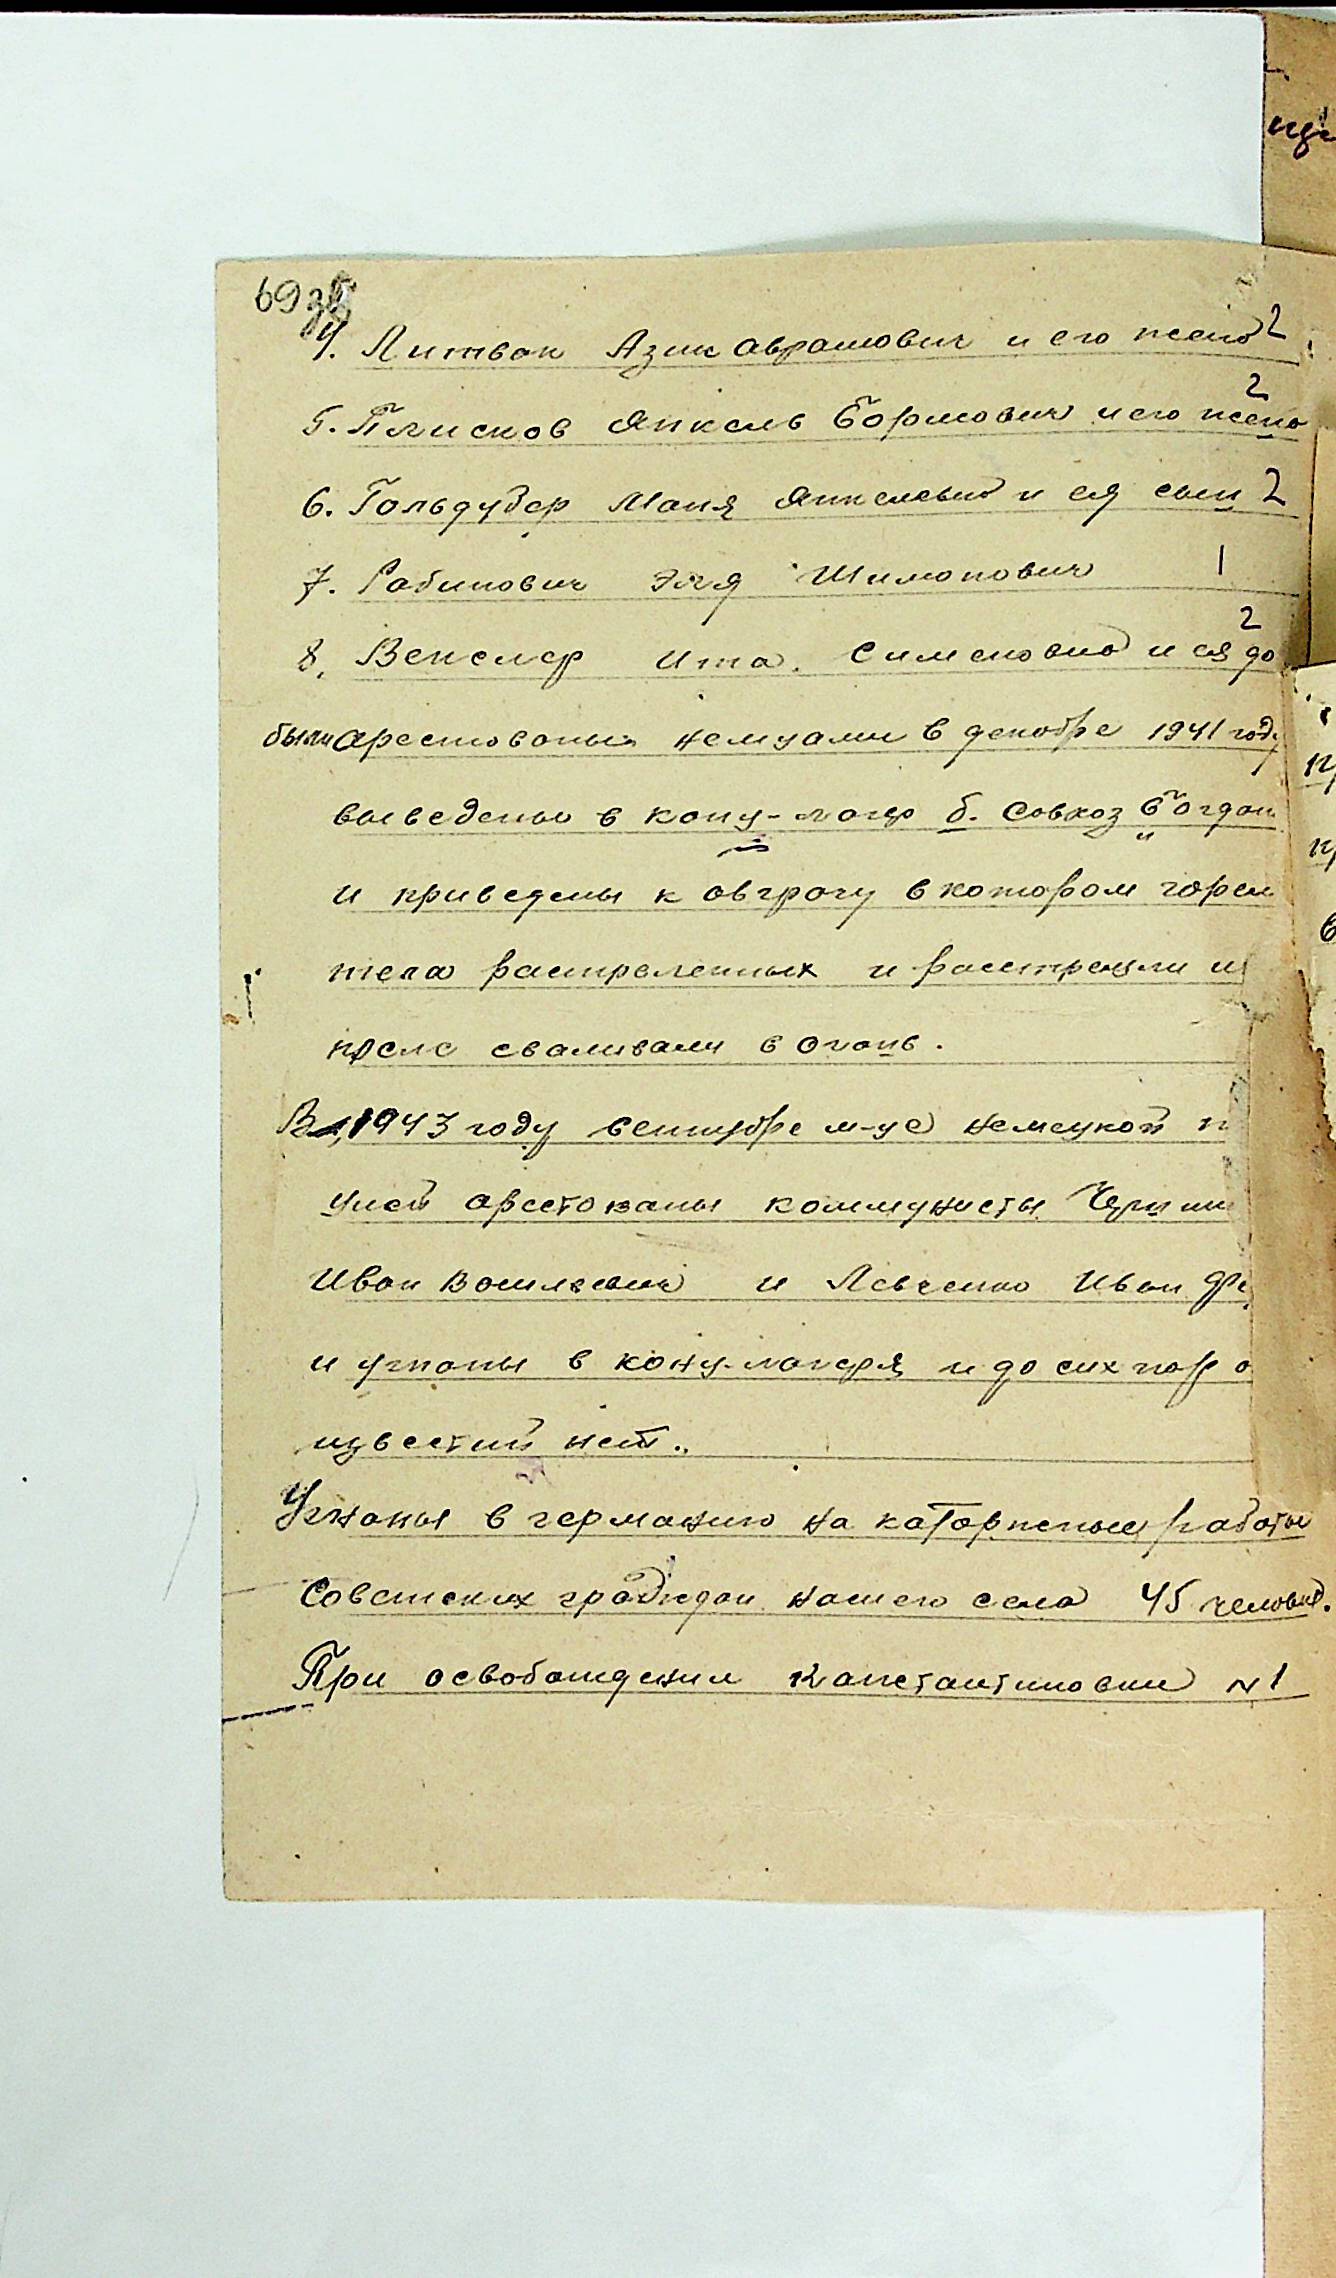 69 зв
4. Литвак Азик Аврамович и его жена 2
5. Плисков Янкель Борисович и его жена 2
6. Гольдубер Маня Янкелевна и ея сын 2
7. Рабинович Эля Шимонович 1
8. Векслер Ита Сименовна и ея до 2
были арестованы немцами в декабре 1941 году
выведены в конц-лагер б. Совхоз "Богдан
и приведены к овграгу в котором горели
тела растреленных и расстреляли и
после сваливали в огонь.
В 1943 году сентябре м-це немецкой п
цией арестованы коммунисты
Иван Василевич и Левченко Иван
и угнаны в конц-лагеря и до сих пор о
известий нет.
Угнаны в германию на каторжные работы
Советских граждан нашего села 45 человек.
При освобождении Канстантиновки N 1